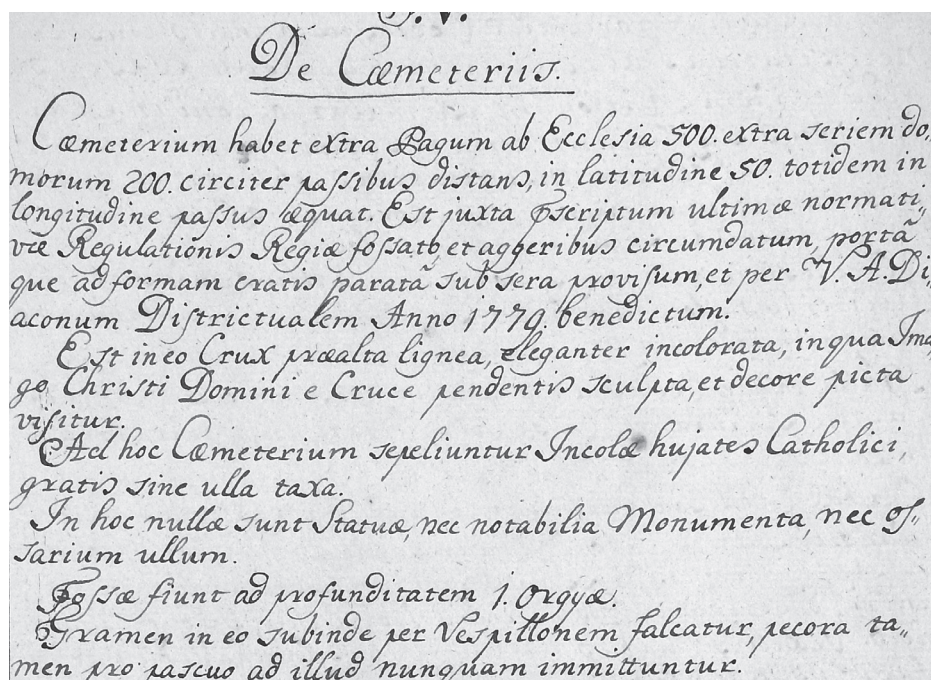 §. V.
De Cæmeteriis.
Cæmeterium habet extra Pagum ab Ecclesia 500. extra seriem do„
morum 200. circiter passibus distans, in latitudine 50. totidem in
longitudine passus æquat. Est juxta Pscriptum ultimæ normati„
væ Regulationis Regiæ fossato, et aggeribus circumdatum, portâ
que ad formam cratis paratâ sub sera provisum, et per V. A. Di„
aconum Districtualem Anno 1779. benedictum.
Est in eo Crux præalta lignea, eleganter incolorata, in qua Ima„
go Christi Domini e Cruce pendentis sculpta, et decore picta
visitur.
Ad hoc Cæmeterium sepeliuntur Incolæ hujates Catholici,
gratis sine ulla taxa.
In hoc nullæ sunt Statuæ, nec notabilia Monumenta, nec os„
sarium ullum.
Fossæ fiunt ad profunditatem 1. Orgyæ.
Gramen in eo subinde per Vespillonem falcatur, pecora ta„
men pro pascuo ad illud nunquam immittuntur.